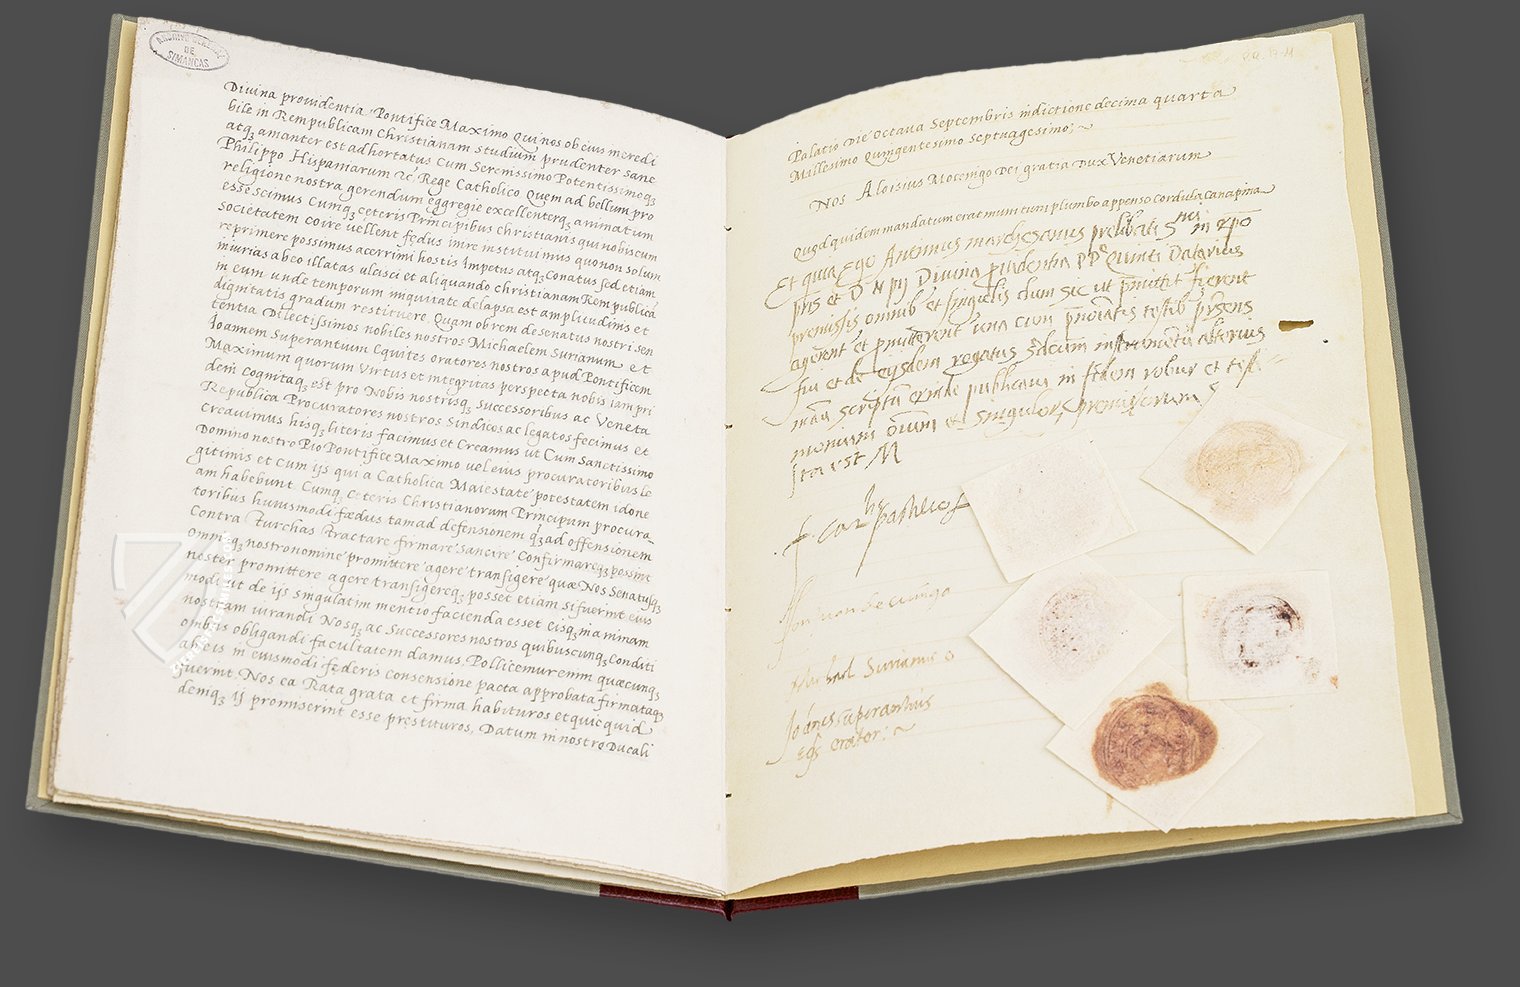 ARCHIVO GENERAL
DE
SIMANCAS
Divina providentia Pontifice Maximo Qui nos ob eius incredi
bile in Rempublicam Christianam studium prudenter sane
atq3 amanter est adhortatus Cum Serenissimo Potentissimoq3
Philippo Hispaniarum etc Rege Catholico Quem ad bellum pro
religione nostra gerendum eggregie excellenterq3 animatum
esse scimus Cumq3 ceteris Principibus christianis qui nobiscum
Societatem coire vellent fędus inire instituimus quo non solum
reprimere possimus acerrimi hostis Impetus atq3 Conatus sed etiam
iniurias ab eo illatas ulcisci et aliquando christianam Rem publicā
in eum unde temporum iniquitate delapsa est amplitudinis et
dignitatis gradum restituere. Quam ob rem de senatus nostri sen
tentia Dilectissimos nobiles nostros Michaelem Surianum et
Ioannem Superantium Equites oratores nostros apud Pontificem
Maximum quorum Virtus et integritas perspecta nobis iam pri
dem cognitaq3 est pro Nobis nostrisq3 Successoribus ac Veneta
Republica Procuratores nostros Sindicos ac legatos fecimus et
Creavimus hisq3 literis facimus et Creamus ut Cum Sanctissimo
Domino nostro Pio Pontifice Maximo vel eius procuratoribus le
gitimis et Cum ijs qui a Catholica Maiestate potestatem idone
am habebunt Cumq3 ceteris Christianorum Principum procura
toribus huiusmodi fædus tam ad defensionem q3 ad offensionem
Contra Turchas Tractare firmare Sancire Confirmareq3 possint
omniaq3 nostro nomine promittere agere transigere quæ Nos Senatusq3
noster promittere agere transigereq3 posset etiam si fuerint eius
modi ut de ijs singulatim mentio facienda esset Eisq3 in animam
nostram iurandi Nosq3 ac Successores nostros quibuscunq3 Conditi
onibus obligandi facultatem damus. Pollicemur enim quæcunq3
ab eis in eiusmodi fęderis consensione pacta approbata firmataq3
fuerint. Nos ea Rata grata et firma habituros et quicquid
deniq3 ij promiserint esse prestituros. Datum in nostro Ducali
Palatio Die Octava Septembris indictione decima quarta
Millesimo Quingentesimo Septuagesimo;
Nos Aloisius Mocenigo Dei gratia Dux Venetiarum
Quod quidem mandatum erat munitum plumbo appenso cordula canapina
Et quia Ego Antonius marchesanus prelibati Smi in xpo
pris et D N pij Divina prudentia PP Quinti Datarius
premissis omnib et singulis dum sic ut pmittit fierent
agerent et pmitterent una cum pnoiatis testib prsens
fui et de eisdem rogatus
manu scriptū exinde publicavi in fidem robur et testi
monium oīum et singulorum premissorum
Ita est M
f. car lis pacheco
Michael Surianus
Ioānes superantius
Eqs orator;